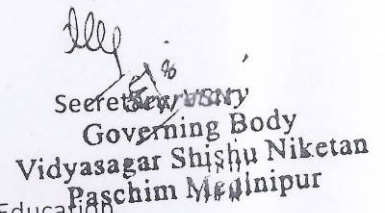 Secretary
Governing Body
Vidyasagar Shishu Niketan
Paschim Medinipur
Education